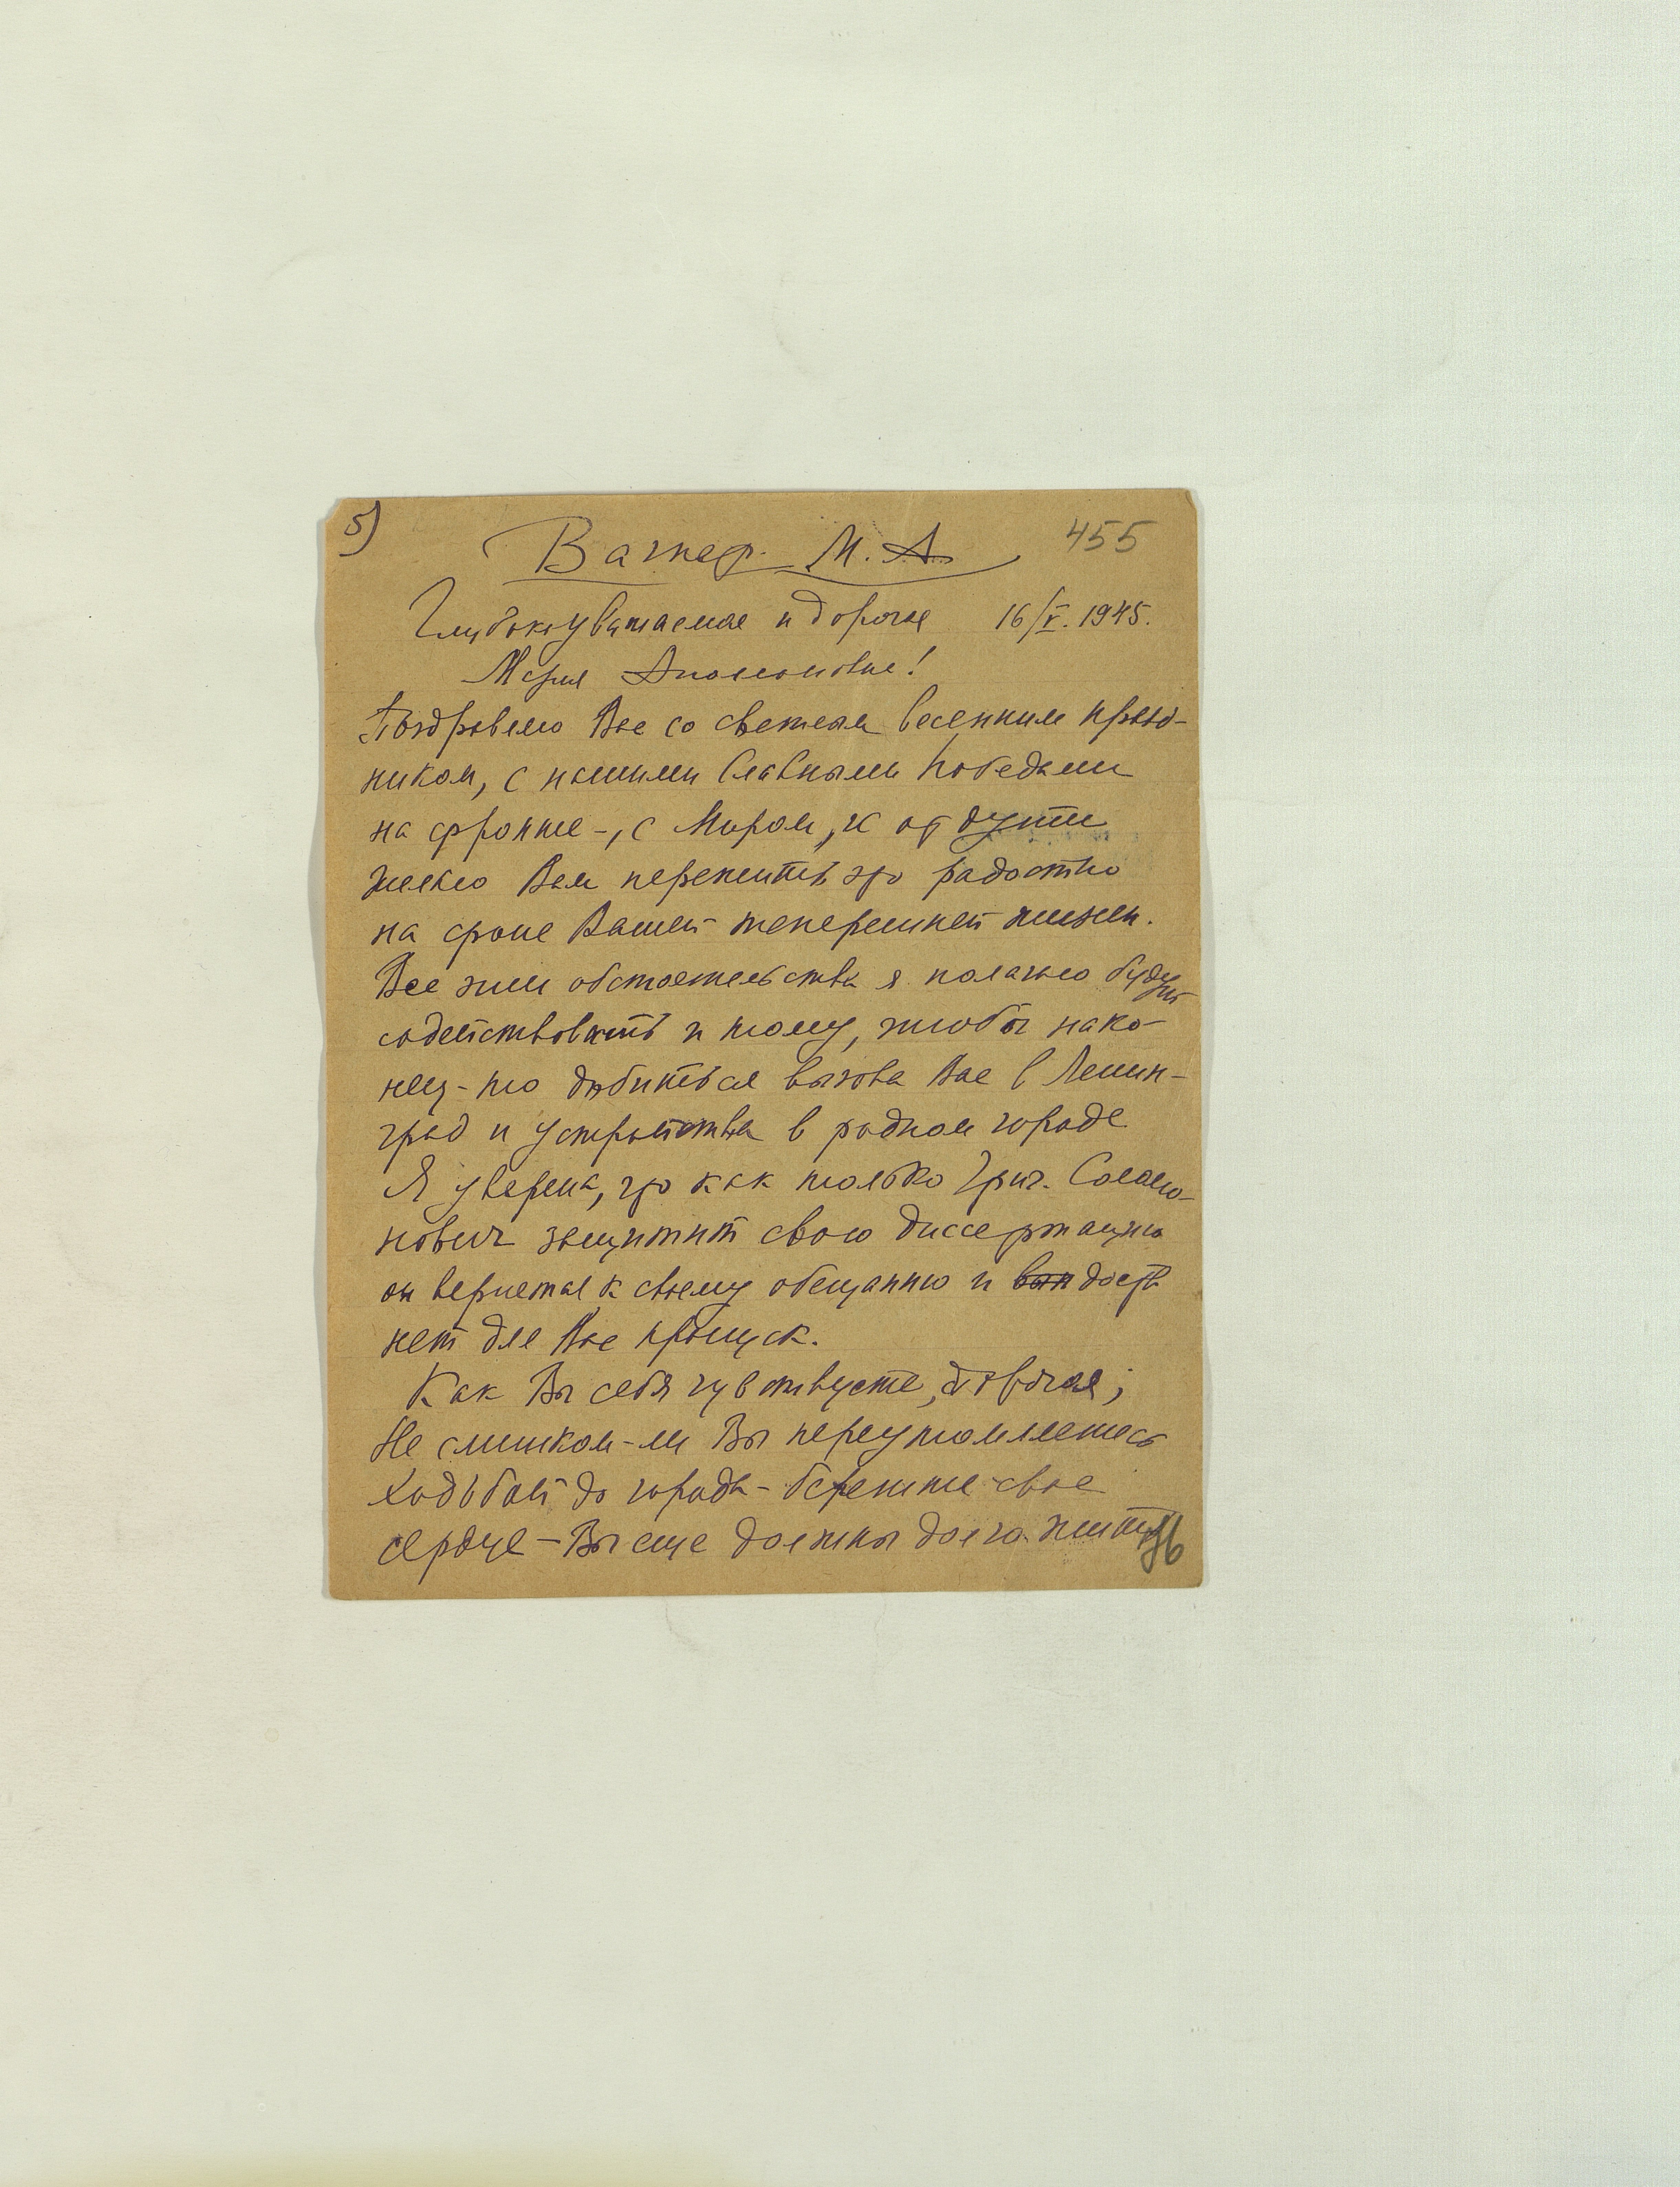 5)
Вагнер М. А.
455
Глубокоуважаемая и дорогая 16/V. 1945.
Мария Аполлоновна!
Поздравляю Вас со светлым весенним празд-
ником, с нашими Славными Победами
на фронте -, с Миром, и от души
желаю Вам пережить это радостно
на фоне Вашей теперешней жизни.
Все эти обстоятельства я полагаю будут
содействовать и тому, чтобы нако-
нец-то добиться вызова Вас в Ленин-
град и устройства в родном городе
Я уверена, что как только Григ. Соломо-
нович защитит свою диссертацию
он вернется к своему обещанию и вып доста
нет для Вас пропуск.
Как Вы себя чувствуете, дорогая;
Не слишком-ли Вы переутомляетесь
ходьбой до города - берегите свое
сердце - Вы еще должны долго жить